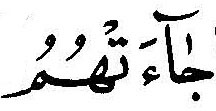 جَآءَتْهُمُ